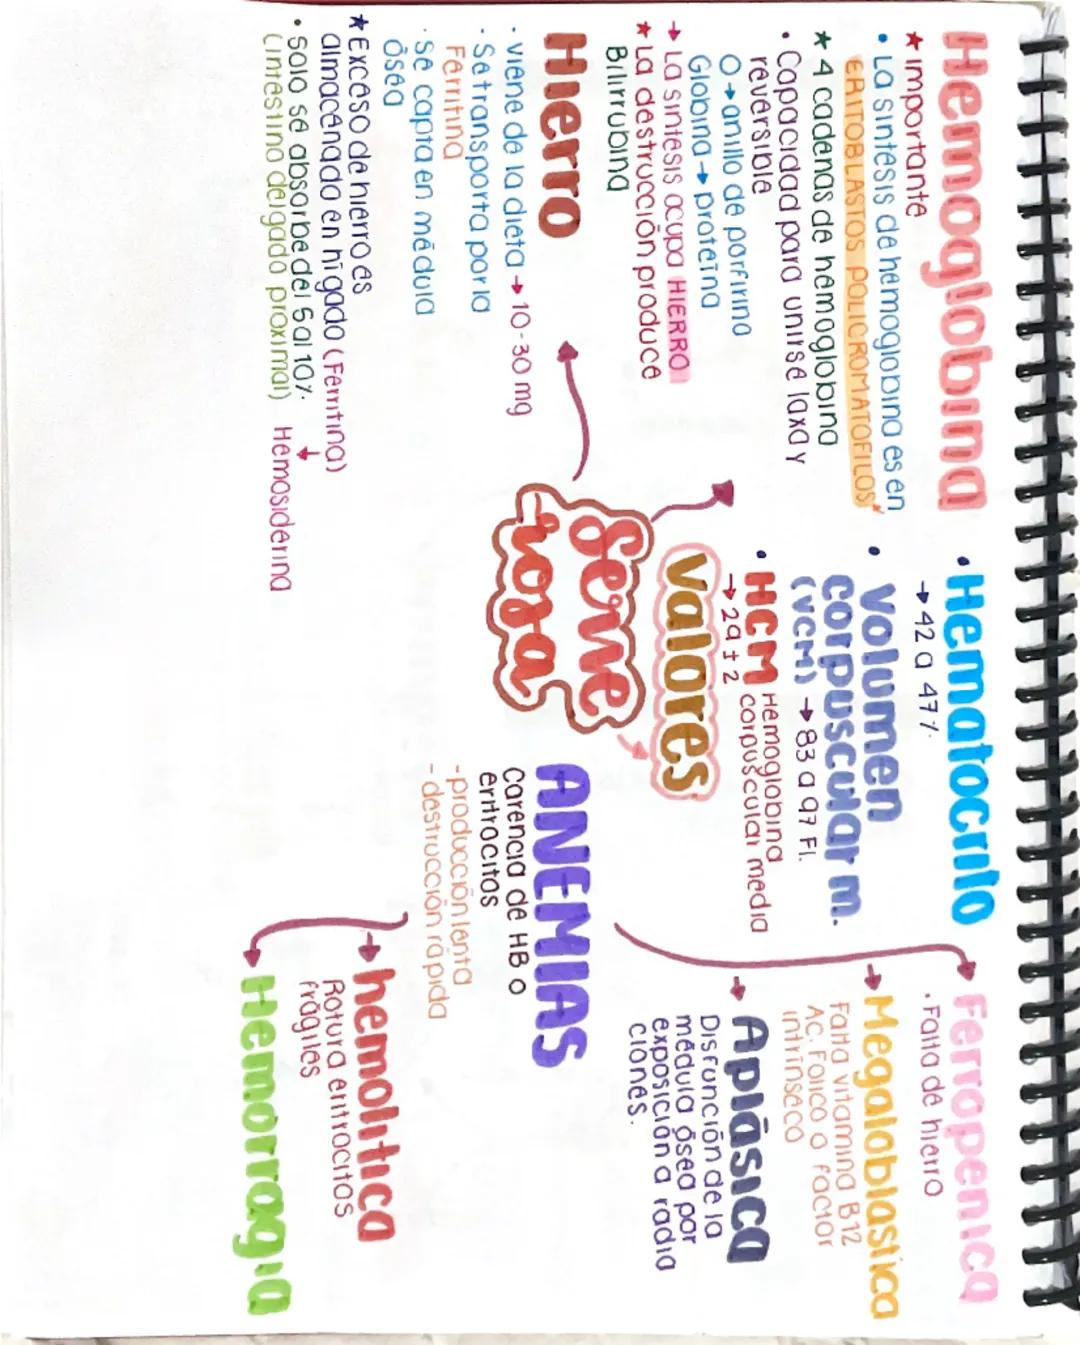 Hemoglobina
★ Importante
• La síntesis de hemoglobina es en
ERITOBLASTOS POLICROMATOFILOS*
★ 4 cadenas de hemoglobina
• Capacidad para unirse laxa y
reversible
O → anillo de porfirina
Globina → proteína
→ La síntesis ocupa HIERRO
★ La destrucción produce
Bilirrubina
Hierro
• Viene de la dieta → 10-30 mg
• Se transporta por la
Ferritina
• Se capta en médula
ósea
★ Exceso de hierro es
almacenado en hígado (Ferritina)
↓
Hemosiderina
• Solo se absorbe del 5 al 10%.
(intestino delgado proximal)
Serie
roja
Valores
• Hematocrito
→ 42 a 47%.
• Volumen
corpuscular m.
(VCM) → 83 a 97 Fl.
• HCM Hemoglobina
corpuscular media
→ 29 ± 2
ANEMIAS
Carencia de HB o
eritrocitos
- producción lenta
- destrucción rápida
Ferropenica
• Falta de hierro
Megaloblastica
Falta vitamina B12
Ac. Folico o factor
intrínseco
Aplásica
Disfunción de la
médula ósea por
exposición a radia
ciones.
hemolítica
Rotura eritrocitos
frágiles
Hemorragia